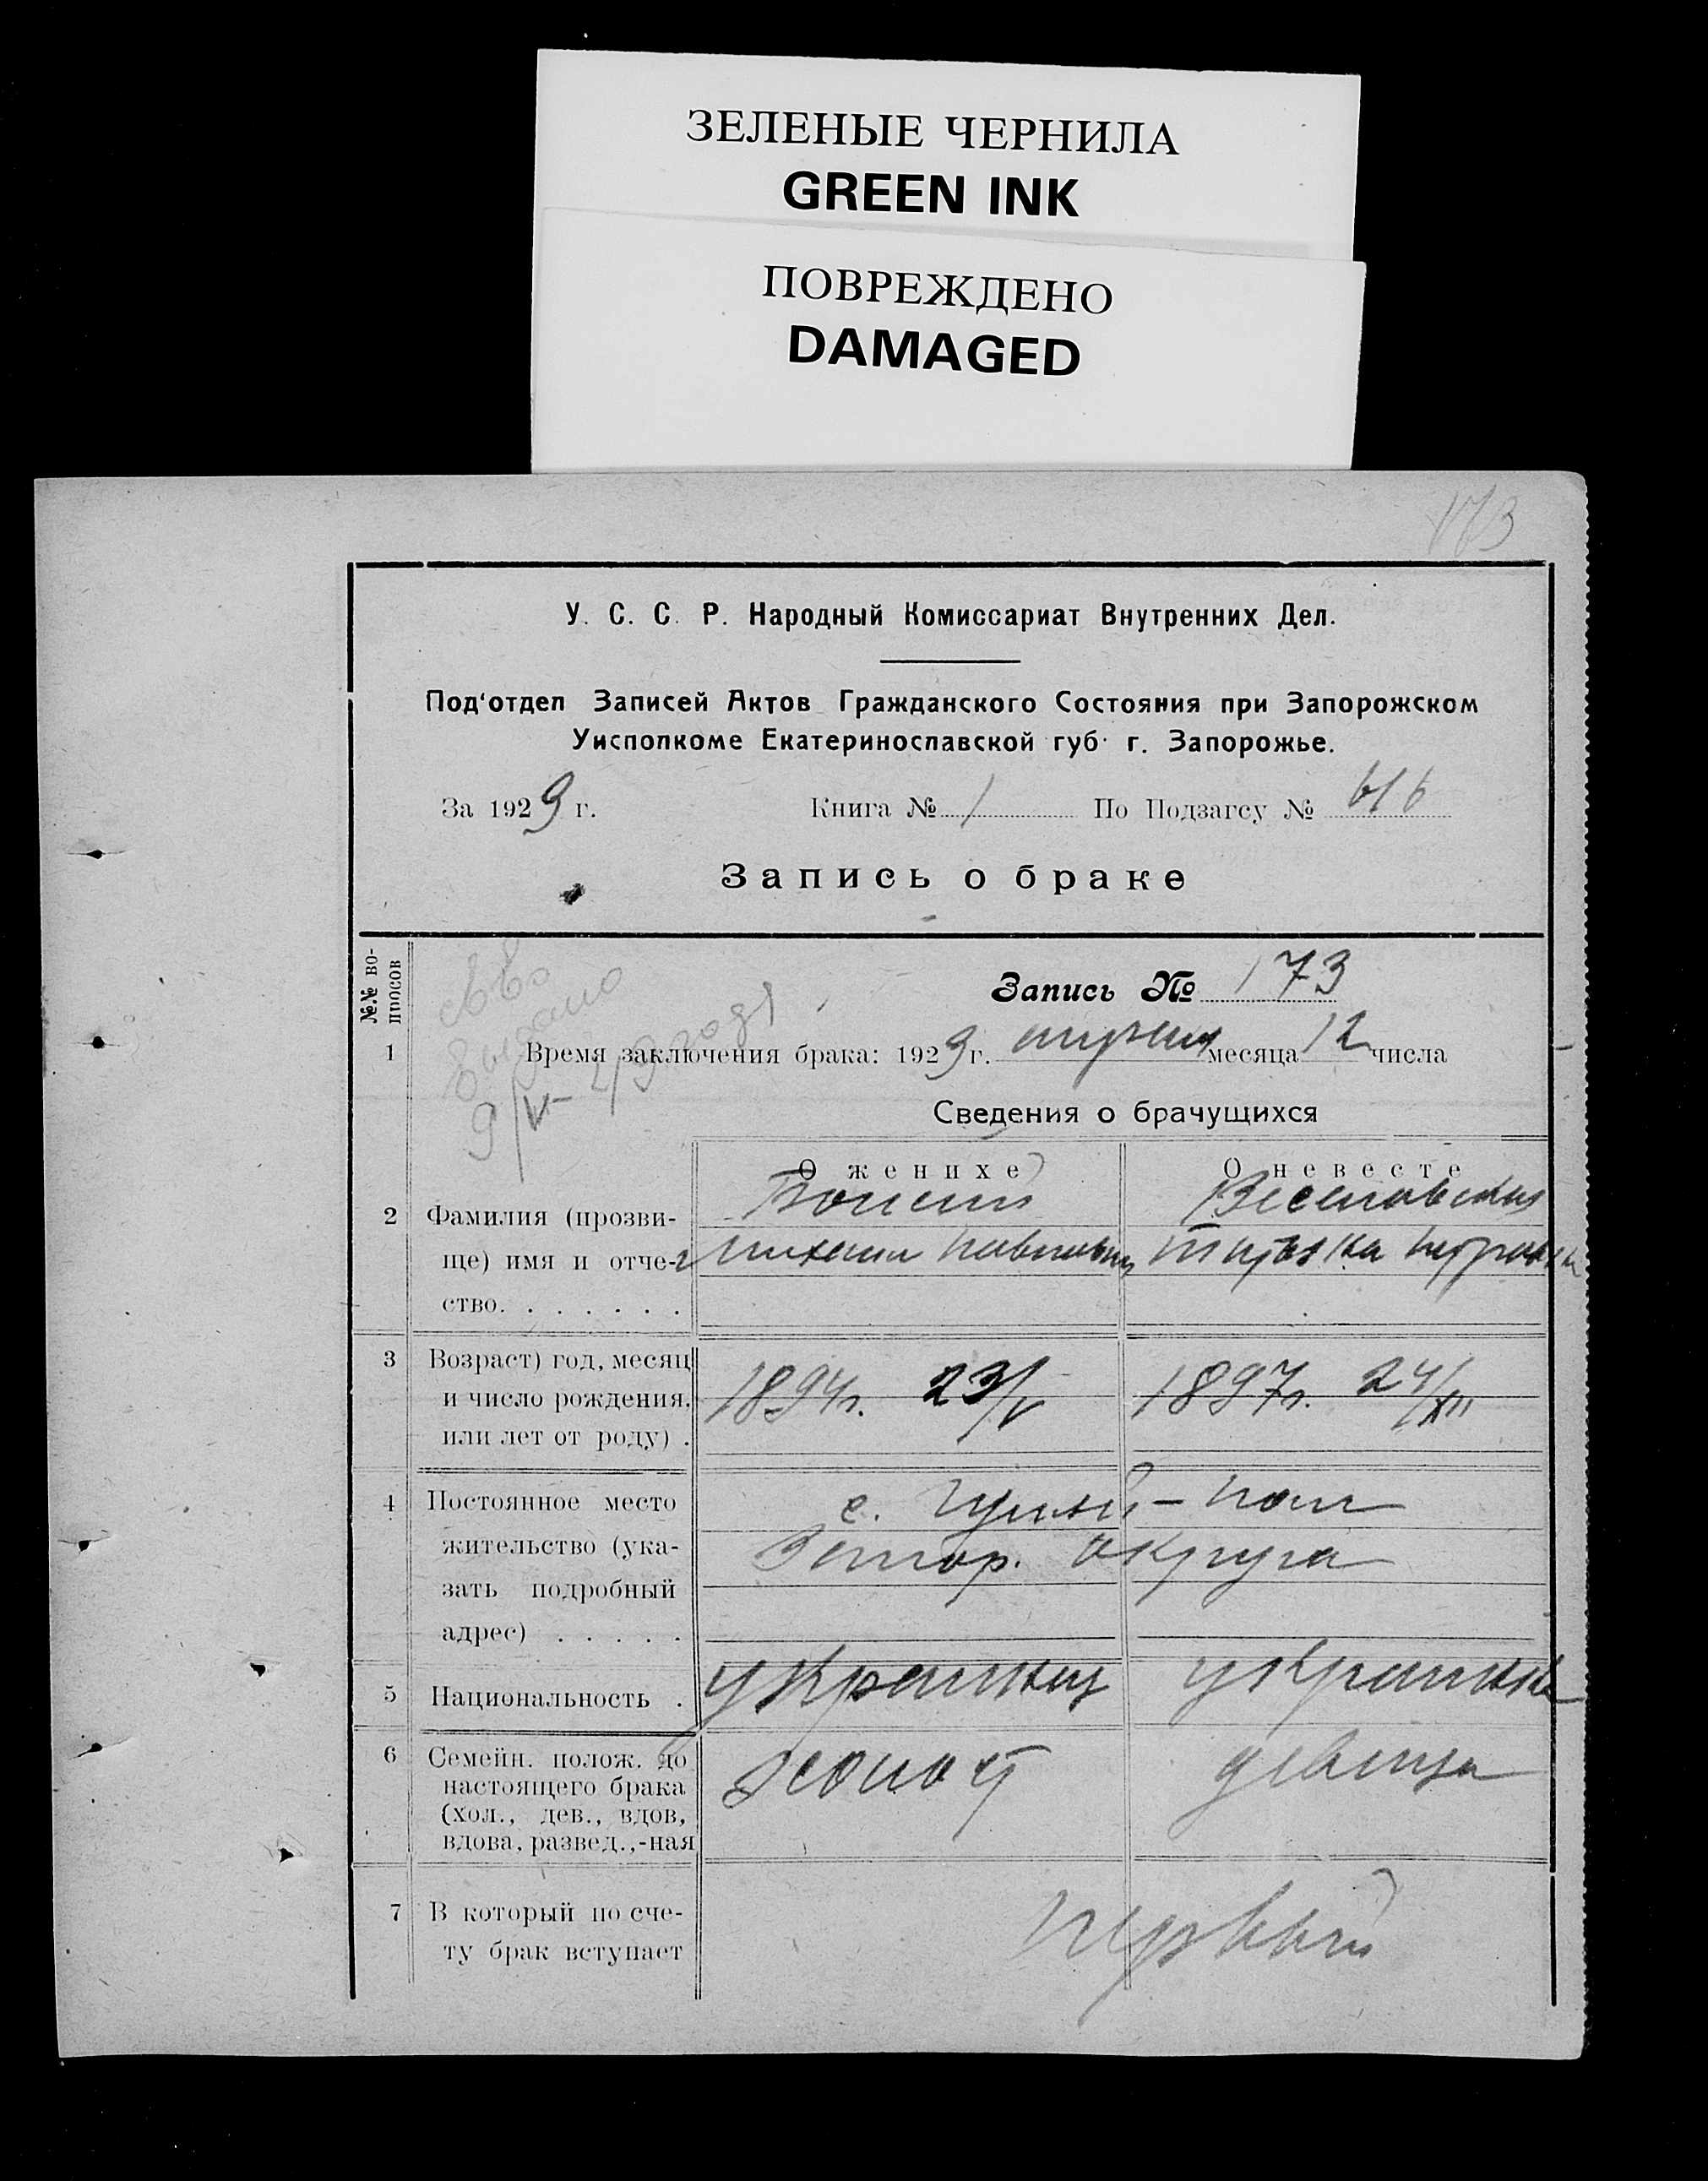 ЗЕЛЕНЫЕ ЧЕРНИЛА
GREEN INK
ПОВРЕЖДЕНО
DAMAGED
173
У. С. С. Р. Народный Комиссариат Внутренних Дел.
Под'отдел Записей Актов Гражданского Состояния при Запорожском
Уисполкоме Екатеринославской губ. г. Запорожье.
За 1929 г. Книга № 1 По Подзагсу №
Запись о браке
№№ во-
просов
Запись № 173
1 Время заключения брака: 1929 г. апреля месяца 12 числа
Сведения о брачущихся
О женихе О невесте
2 Фамилия (прозви- Веселовская
ще) имя и отче- Михаил Павлович
ство. . . . . . .
3 Возраст) год, месяц
и число рождения. 1894 г. 23/V 1897 г. 24/XII
или лет от роду) .
4 Постоянное место с. Гуляй-Поле
жительство (ука- Запор. округа
зать подробный
адрес) . . . . .
5 Национальность . украинец украинка
6 Семейн. полож. до холост девица
настоящего брака
(хол., дев., вдов,
вдова, развед.,-ная
7 В который по сче- первый
ту брак вступает